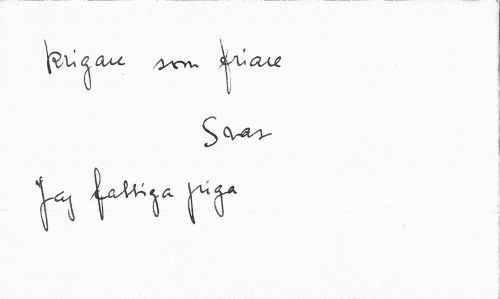 Krigare som friare
Svar
Jag fattiga piga